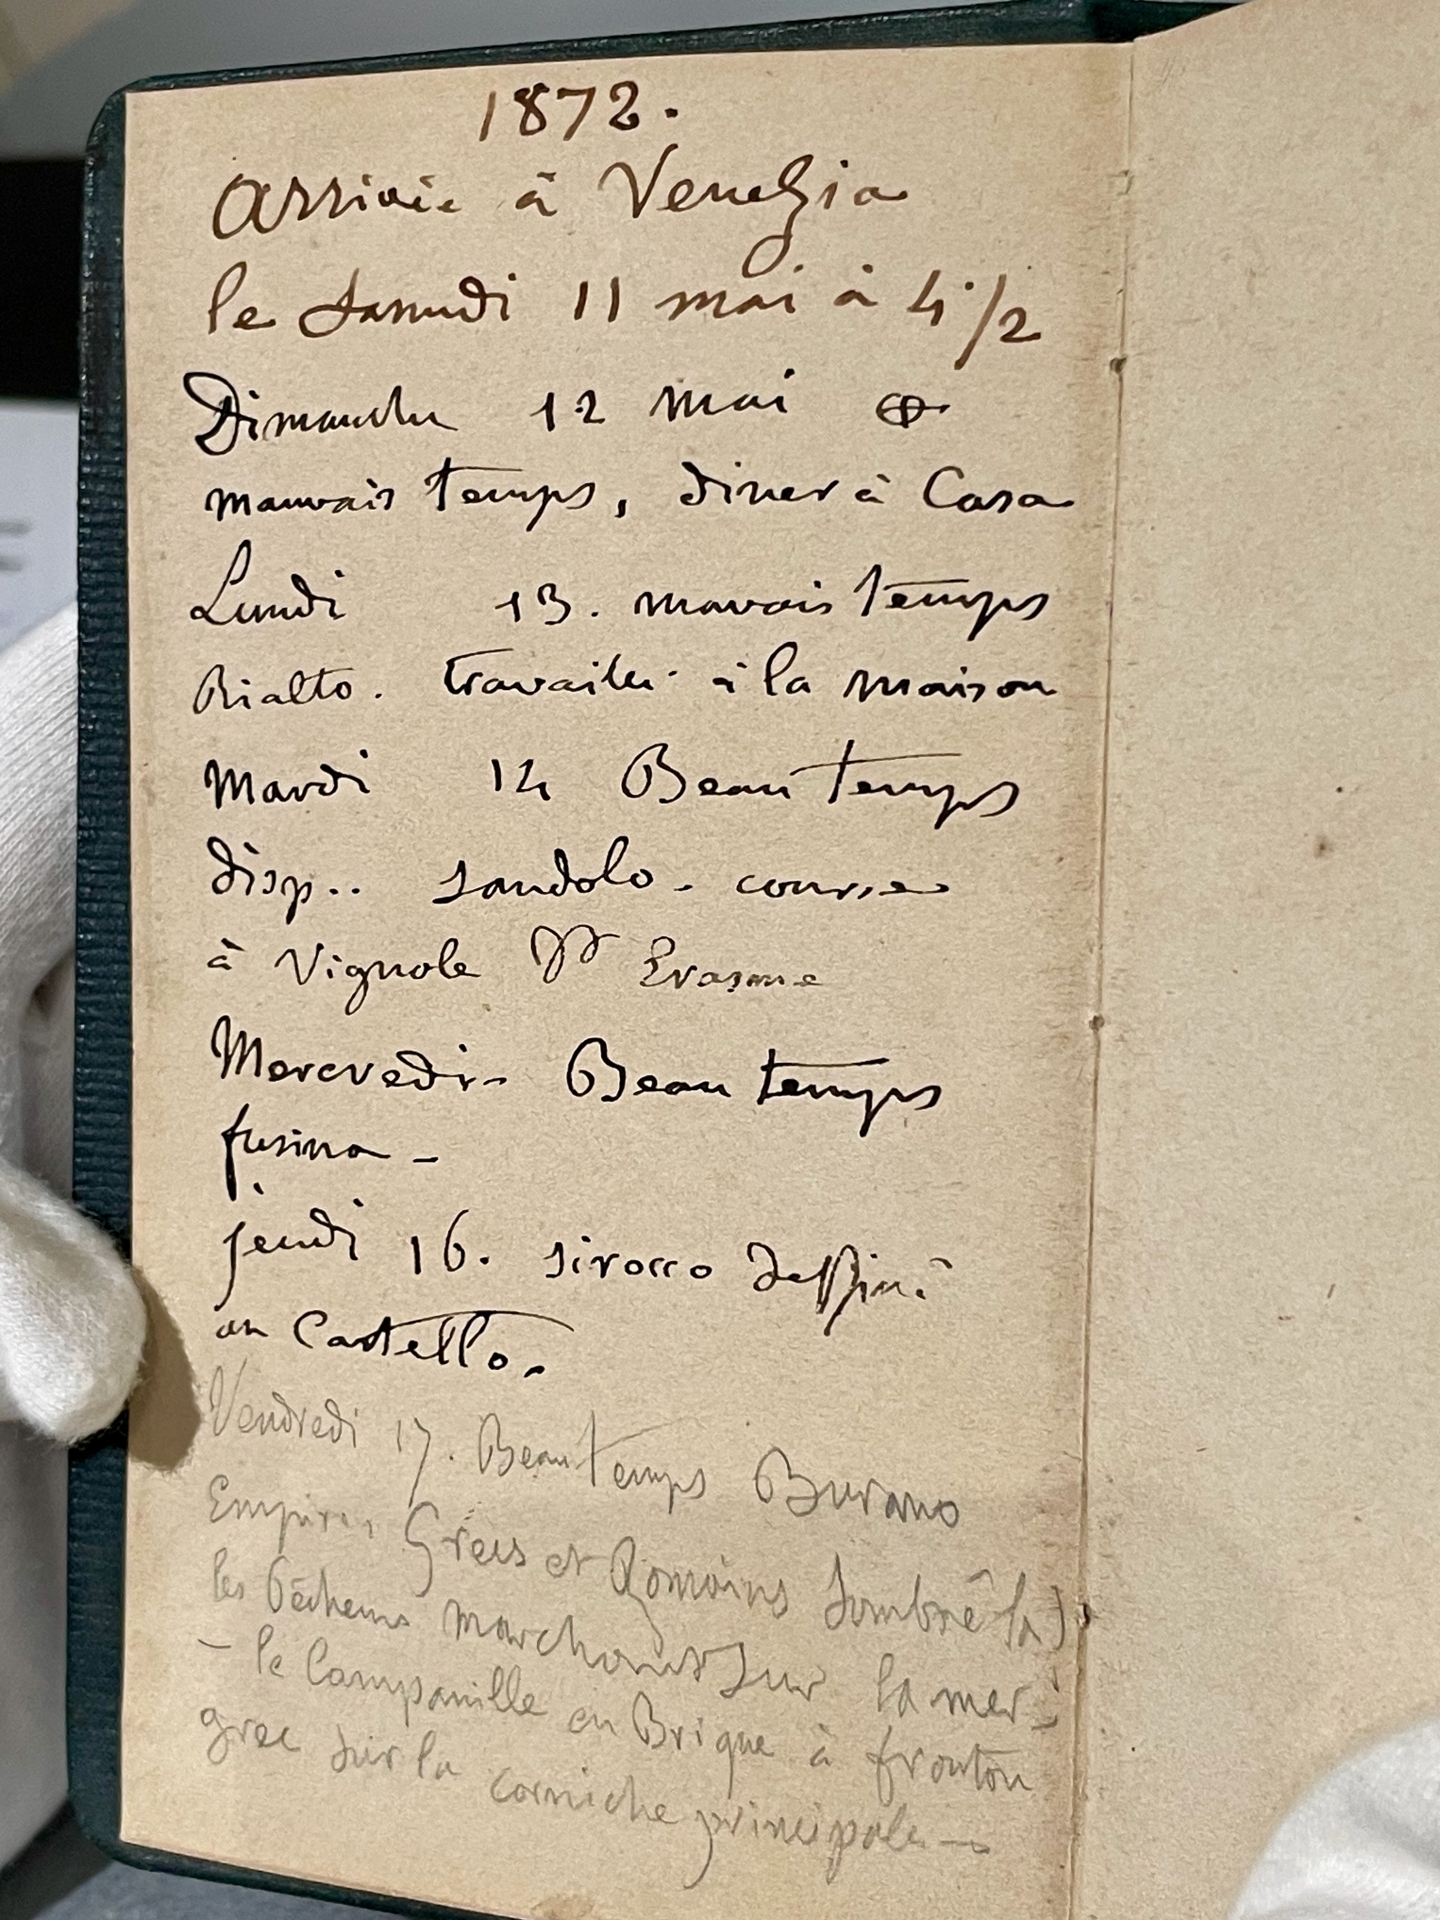 1872.
Arrivée à Venezia
le Samedi 11 mai à 4 1/2
Dimanche 12 mai
mauvais temps, diner à Casa
Lundi 13. mauvais temps
Rialto. travailler à la maison
Mardi 14 Beau temps
disp.. sandolo - course
à Vignole Erasme
Mercredi - Beau temps
fusina -
jeudi 16. sirocco dessiné
au Castello.
Vendredi 17. Beau temps Burano
Empires Grecs et Romains
les Pêcheurs marchant sur la mer
- le Campanille en Brique à fronton
grec sur la corniche principale -